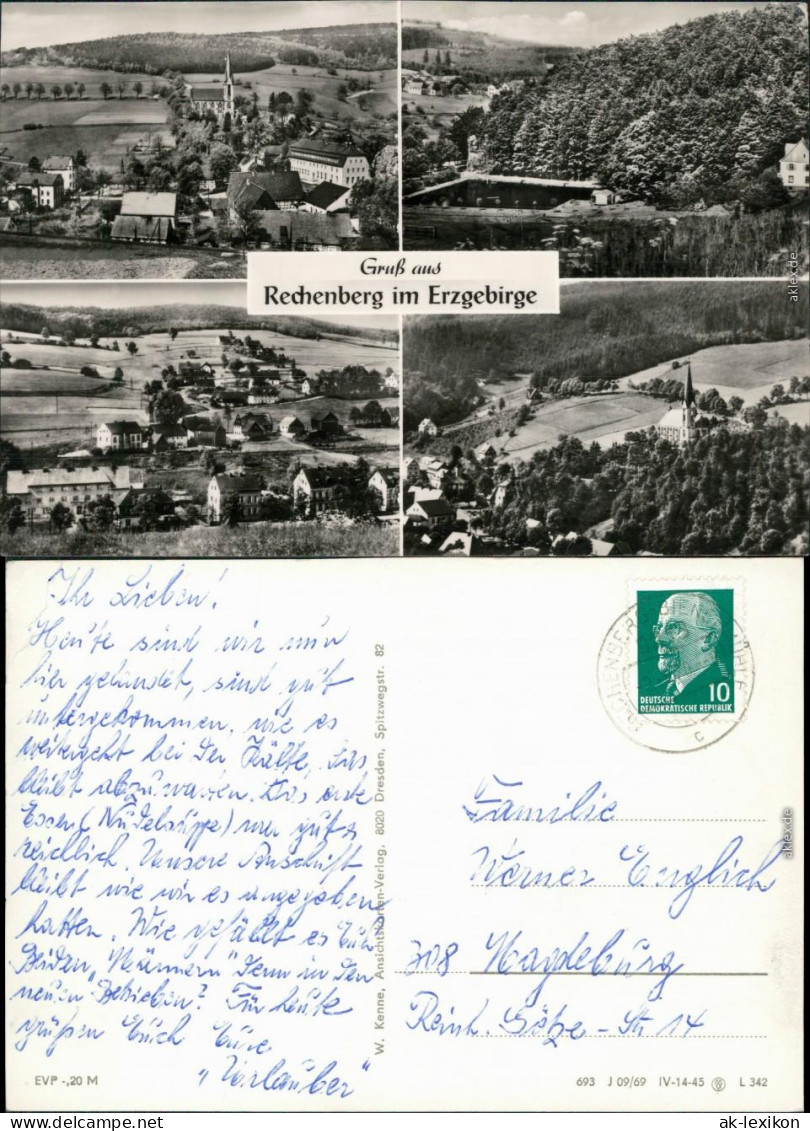 Gruß aus
Rechenberg im Erzgebirge
Ihr Lieben!
Heute sind wir nun
hier gelandet, sind gut
untergekommen, wie es
weitergeht bei der Kälte, das
bleibt abzuwarten. Das erste
Essen (Nudelsuppe) war gut &
reichlich. Unsere Anschrift
bleibt wie wir es angegeben
hatten. Wie gefällt es Euch
Beiden "Männern" denn in den
neuen Betrieben? Für heute
grüßen Euch Eure
"Urlauber"
EVP -,20 M
W. Kenne, Ansichtskarten-Verlag, 8020 Dresden, Spitzwegstr. 82
10
DEUTSCHE
DEMOKRATISCHE REPUBLIK
c
Familie
Werner Englich
308 Magdeburg
Reinh. Götze-Str 14
693 J 09/69 IV-14-45 L 342
aklex.de
aklex.de
ak-lexikon
ak-lexikon.com